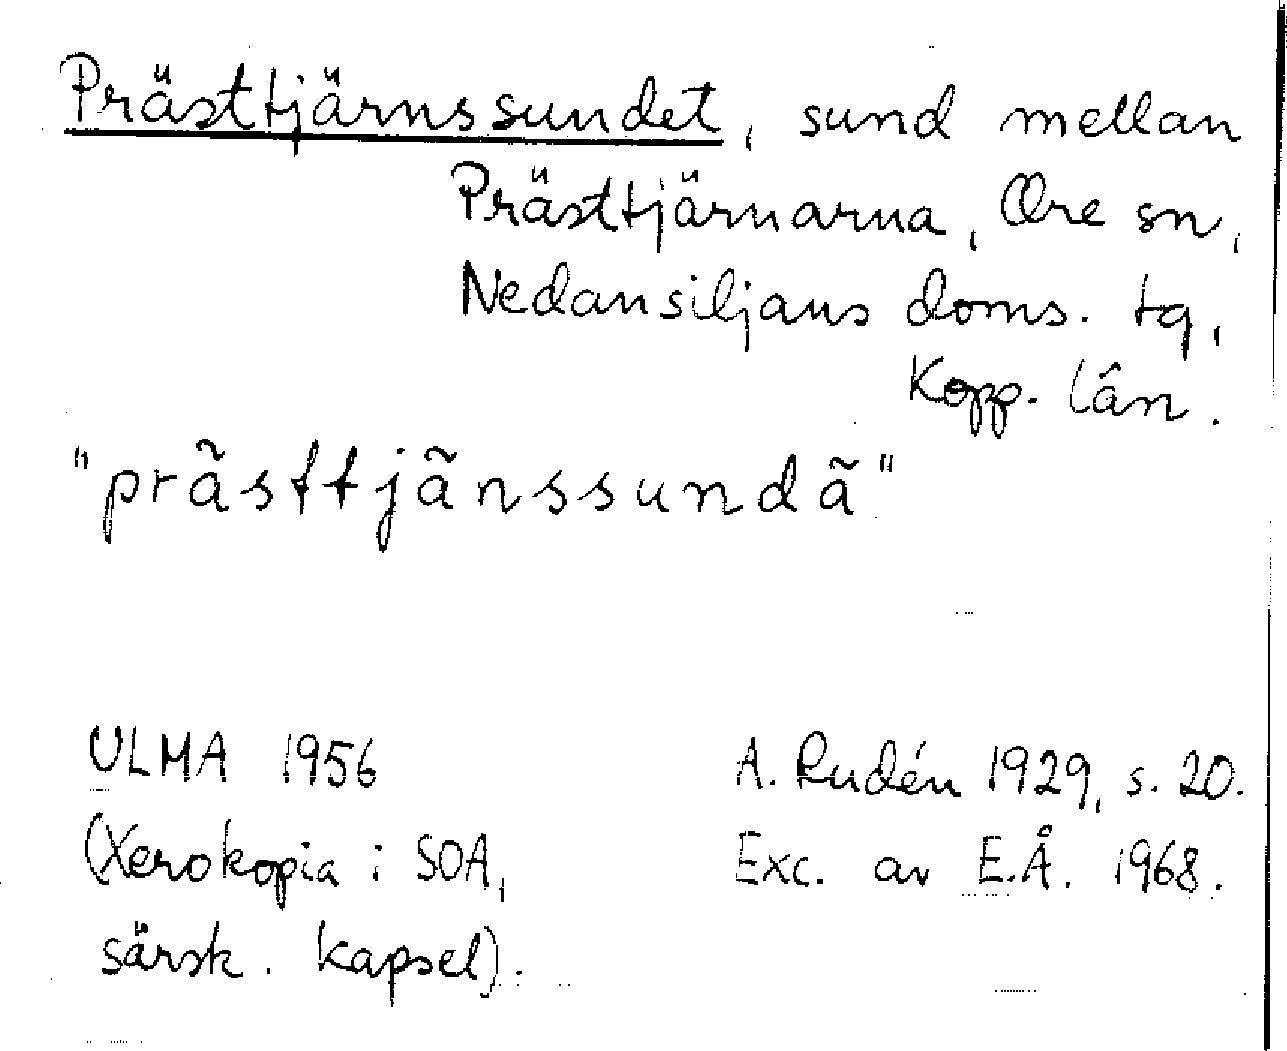 Prästtjärnssundet, sund mellan
Prästtjärnarna, Ore sn,
Nedansiljans doms. tg,
Kopp. län.
"prãsttjãnssundã"
ULMA 1956
(Xerokopia i SOA,
särsk. kapsel).
A. Rudén 1929, s. 20.
Exc. av E.Å. 1968.